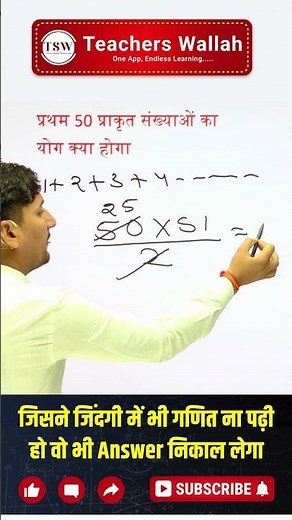 TSW
Teachers Wallah
One App, Endless Learning.....
प्रथम 50 प्राकृत संख्याओं का
योग क्या होगा
1+2+3+4-----
25
50X51 =
2
जिसने जिंदगी में भी गणित ना पढ़ी
हो वो भी Answer निकाल लेगा
SUBSCRIBE